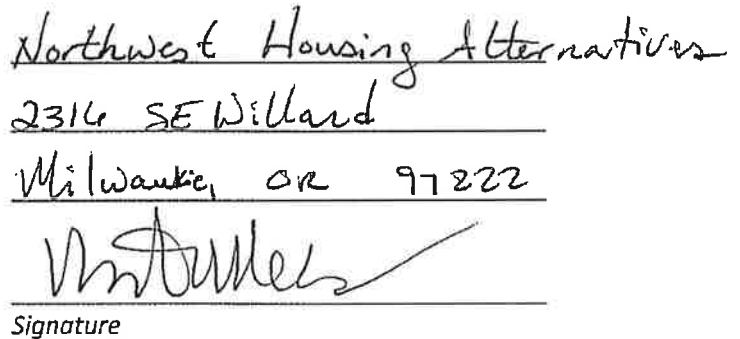 Northwest Housing Alternatives
2316 SE Willard
Milwaukie, OR 97222
Signature